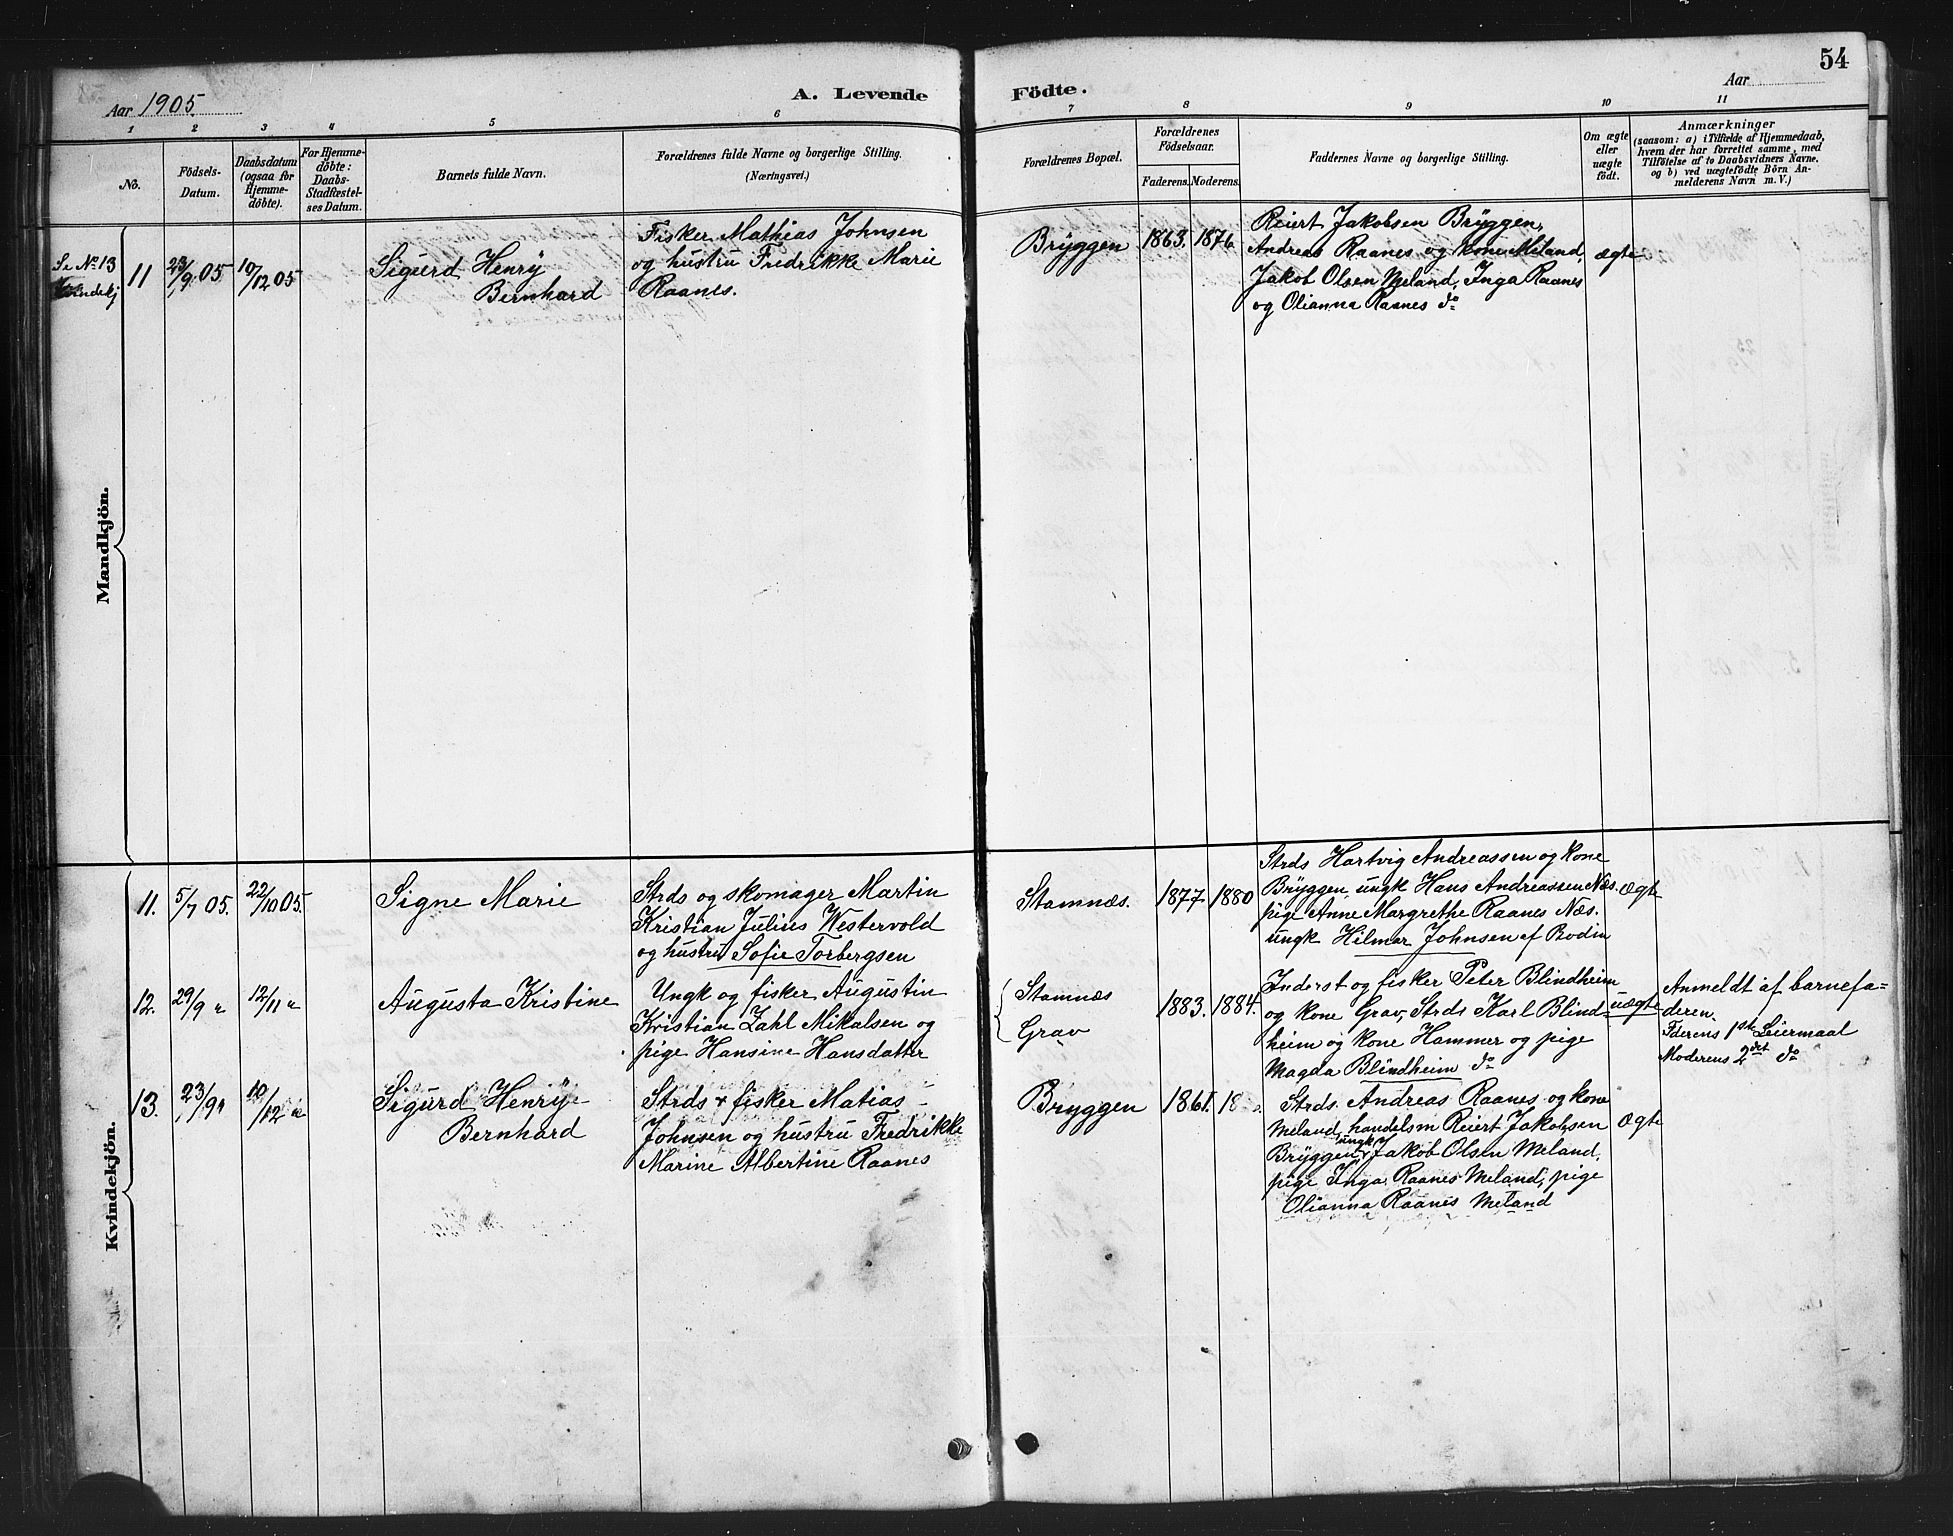 54
Aar 1905. A. Levende Födte. Aar
1 2 3 4 5 6 7 8 9 10 11
No.
Födsels-
Datum.
Daabsdatum
(ogsaa for
Hjemme-
döbte).
For Hjemme-
döbte:
Daabs-
Stadfæstel-
ses Datum.
Barnets fulde Navn.
Forældrenes fulde Navne og borgerlige Stilling.
(Næringsvei.)
Forældrenes Bopæl.
Forældrenes
Födselsaar.
Faderens. Moderens.
Faddernes Navne og borgerlige Stilling.
Om ægte
eller
uægte
födt.
Anmærkninger
(saasom: a) i Tilfælde af Hjemmedaab,
hvem der har forrettet samme, med
Tilföielse af to Daabsvidners Navne.
og b) ved uægtefödte Börn An-
melderens Navn m. V.)
Mandkjön.
Se No 13
Kvindekj
11 23/9 05 10/12 05
Sigurd Henry
Bernhard
Fisker Mathias Johnsen
og hustru Fredrikke Marie
Raanes.
Bryggen 1863. 1876
Reiert Jakobsen Bryggen,
Andreas Raanes og kone Meland,
Jakob Olsen Meland, Inga Raanes
og Olianna Raanes do
ægte
Kvindekjön.
11. 5/7 05. 22/10 05.
Signe Marie
Strds og skomager Martin
Kristian Julius Westervold
og hustru Sofie Torbergsen
Stamnæs. 1877 1880
Strds Hartvig Andreassen og kone
Bryggen ungk Hans Andreassen Næs.
pige Anne Margrethe Raanes Næs.
ungk Hilmar Johnsen af Bodin
Ægte
12. 29/9 " 12/11 "
Augusta Kristine
Ungk og fisker Augustin
Kristian Zahl Mikalsen og
pige Hansine Hansdatter
Stamnæs
Grav
1883. 1884.
Inderst og fisker Peter Blindheim
og kone Grav, Strds Karl Blind-
heim og kone Hammer og pige
Magda Blindheim do
uægte
Anmeldt af barnefa-
deren.
Fderens 1ste Leiermaal
Moderens 2det do
13. 23/9 " 10/12 "
Sigurd Henry
Bernhard
Strds + fisker Matias
Johnsen og hustru Fredrikke
Marine Albertine Raanes
Bryggen 1861. 18
Strds. Andreas Raanes og kone
Meland, handelsm Reiert Jakobsen
Bryggen, ungk Jakob Olsen Meland,
pige Inga Raanes Meland, pige
Olianna Raanes Meland
Ægte